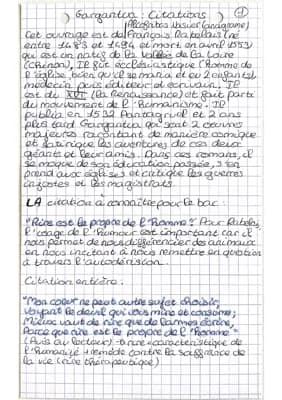 Gargantua : Citations ①
(Alcofribas Nasier (anagrame)
Cet ouvrage est de François Rabelais (né
entre 1483 et 1494 et mort en avril 1553)
qui est un natif de la Vallée de la Loire
(Chinon). Il fût ecclésiastique (Homme de
l'église, bien qu'il se maria et eu 2 enfants),
médecin puis éditeur et écrivain. Il
est du XVIᵉ (la Renaissance) et fait parti
du mouvement de l'Humanisme. Il
publia en 1532 Pantagruel et 2 ans
plus tard Gargantua qui sont 2 œuvres
majeures racontant de manière comique
et satirique les aventures de ces deux
géants et leur amis. Dans ces romans, il
se moque de son éducation passée, s'en
prend aux églises et critique les guerres
injustes et les magistrats.
LA citation à connaître pour le bac :
"Rire est le propre de l'Homme". Pour Rabelais,
l'usage de l'humour est important car il
nous permet de nous différencier des animaux
en nous incitant à nous remettre en question
à travers l'autodérision.
Citation entière :
"Mon coeur ne peut autre sujet choisir,
Voyant le deuil qui vous mine et consume ;
Mieux vaut de rire que de larmes écrire,
Parce que rire est le propre de l'Homme."
(Avis au lecteur) → rire = caractéristique de
l'Humanité + remède contre la souffrance de
la vie (rire thérapeutique)